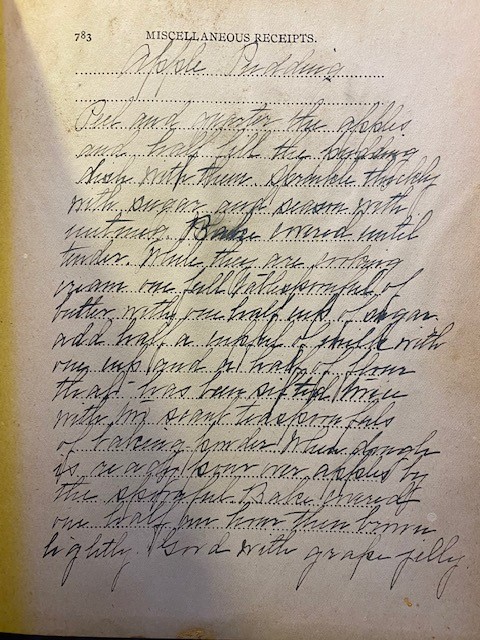 783 MISCELLANEOUS RECEIPTS.
Apple Pudding
Peel and quarter the apples
and half fill the pudding
dish with them sprinkle thickly
with sugar and season with
nutmeg. Bake covered until
tender. While they are cooking
cream one full tablespoonful of
butter with one half cup of sugar
add half a cupful of milk with
one cup and a half of flour
that has been sifted twice
with two scant teaspoonfuls
of baking powder When dough
is ready pour over apples by
the spoonful. Bake covered
one half an hour then brown
lightly. Good with grape jelly